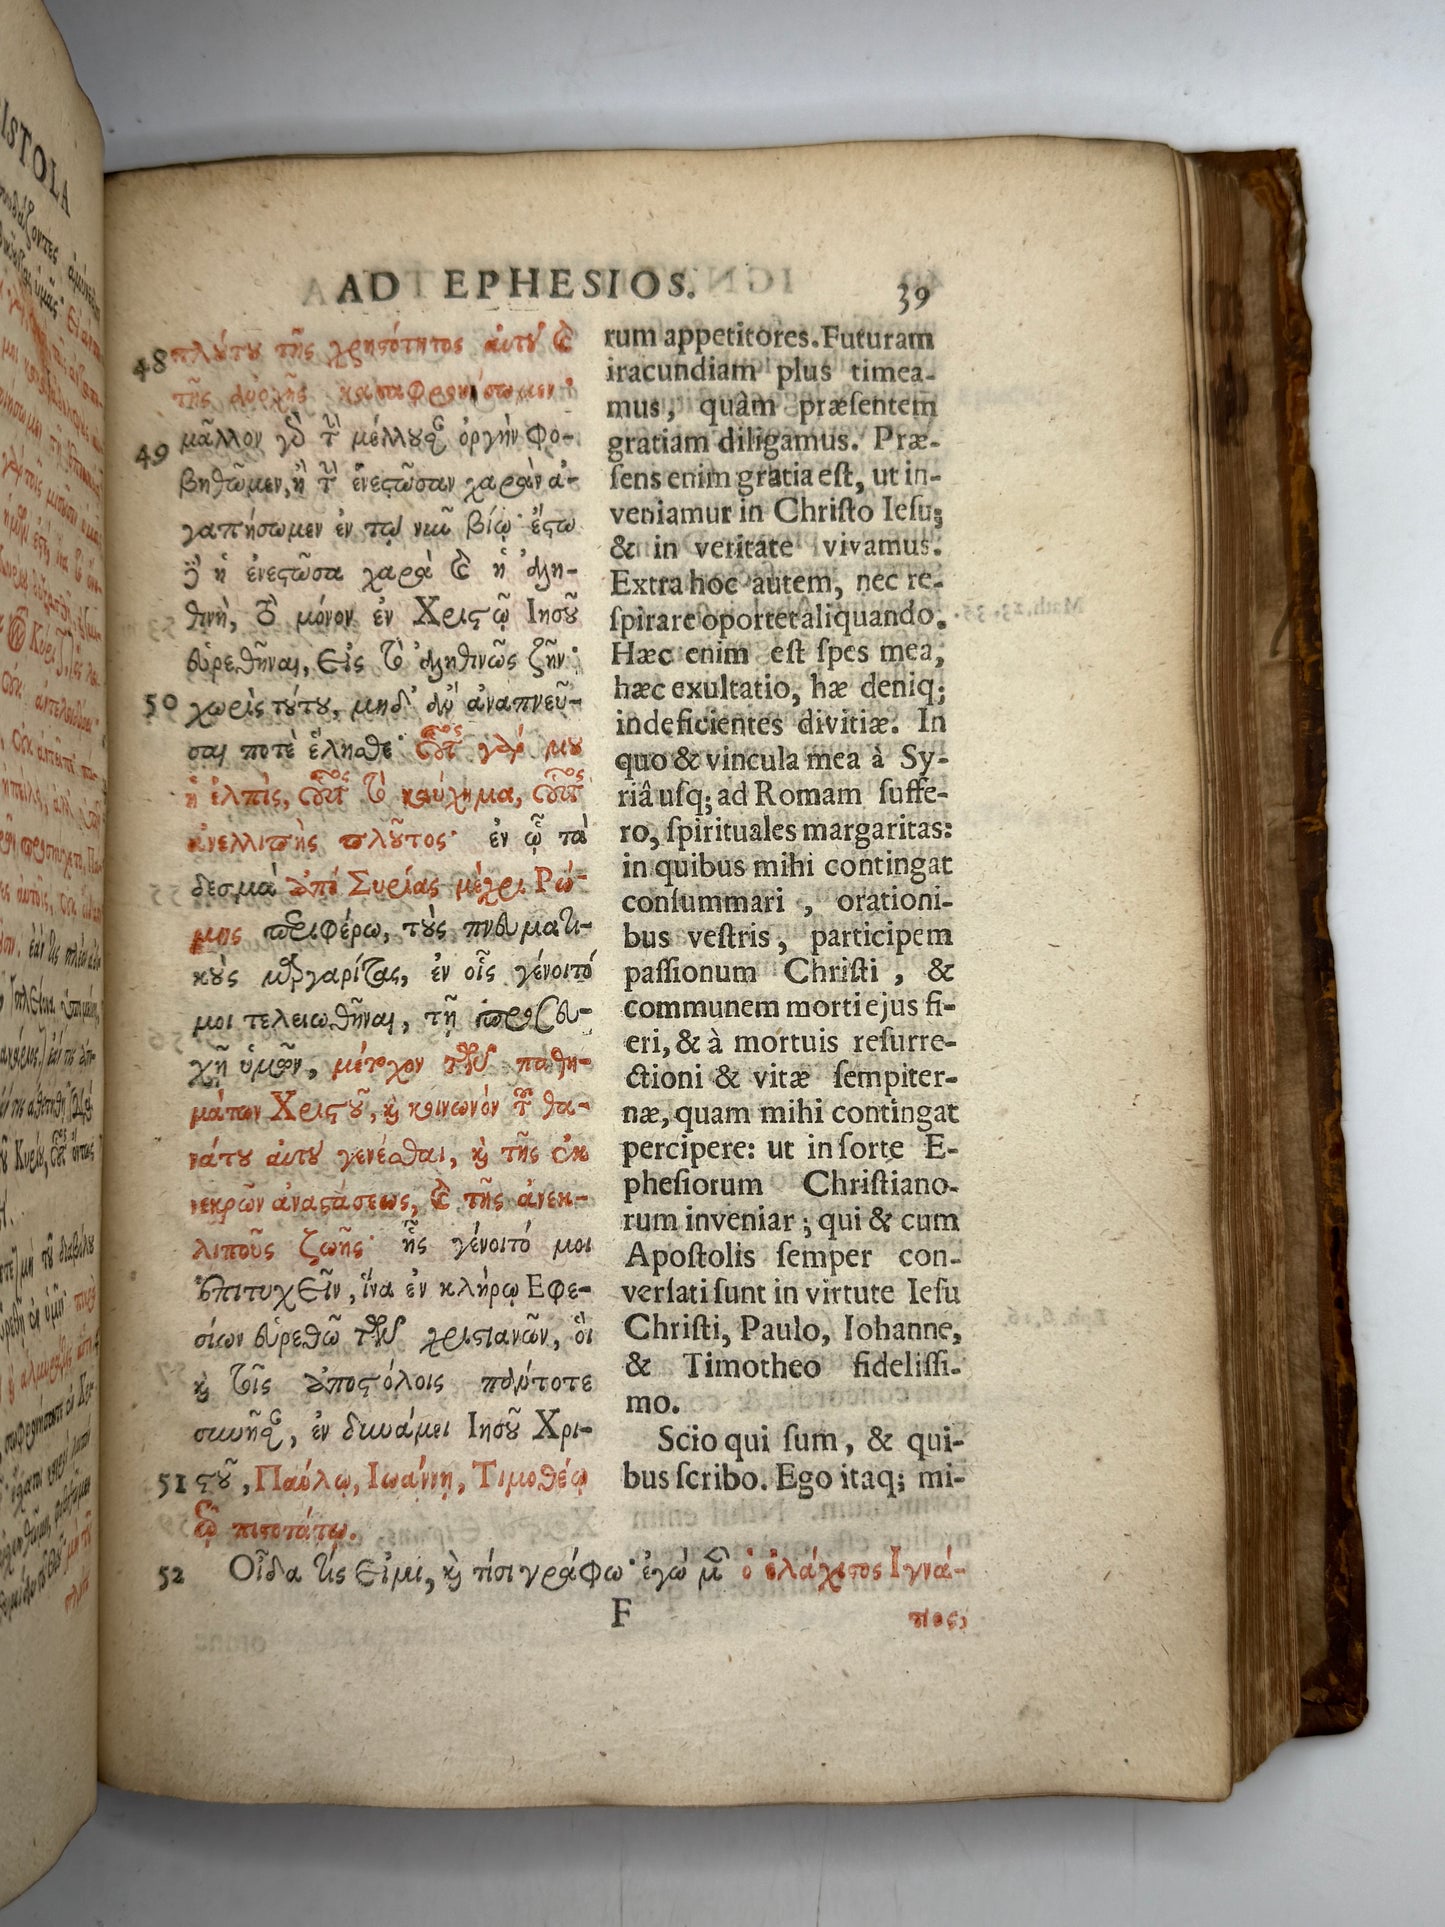 AD EPHESIOS.
39
48 πλούτου τῆς χρηστότητος αὐτοῦ καὶ
τῆς ἀνοχῆς καταφρονήσωμεν·
49 μᾶλλον γὰρ τὴν μέλλουσαν ὀργὴν φο-
βηθῶμεν, ἢ τὴν ἐνεστῶσαν χαρὰν ἀ-
γαπήσωμεν ἐν τῷ νῦν βίῳ· ἔστω
δὲ ἡ ἐνεστῶσα χαρὰ καὶ ἡ ἀλη-
θινὴ, τὸ μόνον ἐν Χριστῷ Ἰησοῦ
εὑρεθῆναι, εἰς τὸ ἀληθινῶς ζῆν·
50 χωρὶς τούτου, μηδ' ἂν ἀναπνεῦ-
σαι ποτὲ ἕλησθε· οὗτος γάρ μου
ἡ ἐλπὶς, οὗτος τὸ καύχημα, οὗτος
ἀνελλιπὴς πλοῦτος· ἐν ᾧ τὰ
δεσμὰ ἀπὸ Συρίας μέχρι Ῥώ-
μης περιφέρω, τοὺς πνευματι-
κοὺς μαργαρίτας, ἐν οἷς γένοιτό
μοι τελειωθῆναι, τῇ προσευ-
χῇ ὑμῶν, μέτοχον τῶν παθη-
μάτων Χριστοῦ, καὶ κοινωνὸν τοῦ θα-
νάτου αὐτοῦ γενέσθαι, καὶ τῆς ἐκ
νεκρῶν ἀναστάσεως, καὶ τῆς ἀνεκ-
λιποῦς ζωῆς· ἧς γένοιτό μοι
ἐπιτυχεῖν, ἵνα ἐν κλήρῳ Ἐφε-
σίων εὑρεθῶ τῶν χριστιανῶν, οἳ
καὶ τοῖς ἀποστόλοις πάντοτε
συνῆσαν, ἐν δυνάμει Ἰησοῦ Χρι-
51 στοῦ, Παύλῳ, Ἰωάννῃ, Τιμοθέῳ
τῷ πιστοτάτῳ.
rum appetitores. Futuram
iracundiam plus timea-
mus, quàm præsentem
gratiam diligamus. Præ-
sens enim gratia est, ut in-
veniamur in Christo Iesu;
& in veritate vivamus.
Extra hoc autem, nec re-
spirare oportet aliquando.
Hæc enim est spes mea,
hæc exultatio, hæ deniq;
indeficientes divitiæ. In
quo & vincula mea à Sy-
riâ usq; ad Romam suffe-
ro, spirituales margaritas:
in quibus mihi contingat
consummari , orationi-
bus vestris, participem
passionum Christi , &
communem morti ejus fi-
eri, & à mortuis resurre-
ctioni & vitæ sempiter-
næ, quam mihi contingat
percipere: ut in sorte E-
phesiorum Christiano-
rum inveniar ; qui & cum
Apostolis semper con-
versati sunt in virtute Iesu
Christi, Paulo, Iohanne,
& Timotheo fidelissi-
mo.
Scio qui sum, & qui-
bus scribo. Ego itaq; mi-
52 Οἶδα τίς εἰμι, καὶ τίσι γράφω· ἐγὼ μὲν ὁ ἐλάχιστος Ἰγνά-
F
τιος,